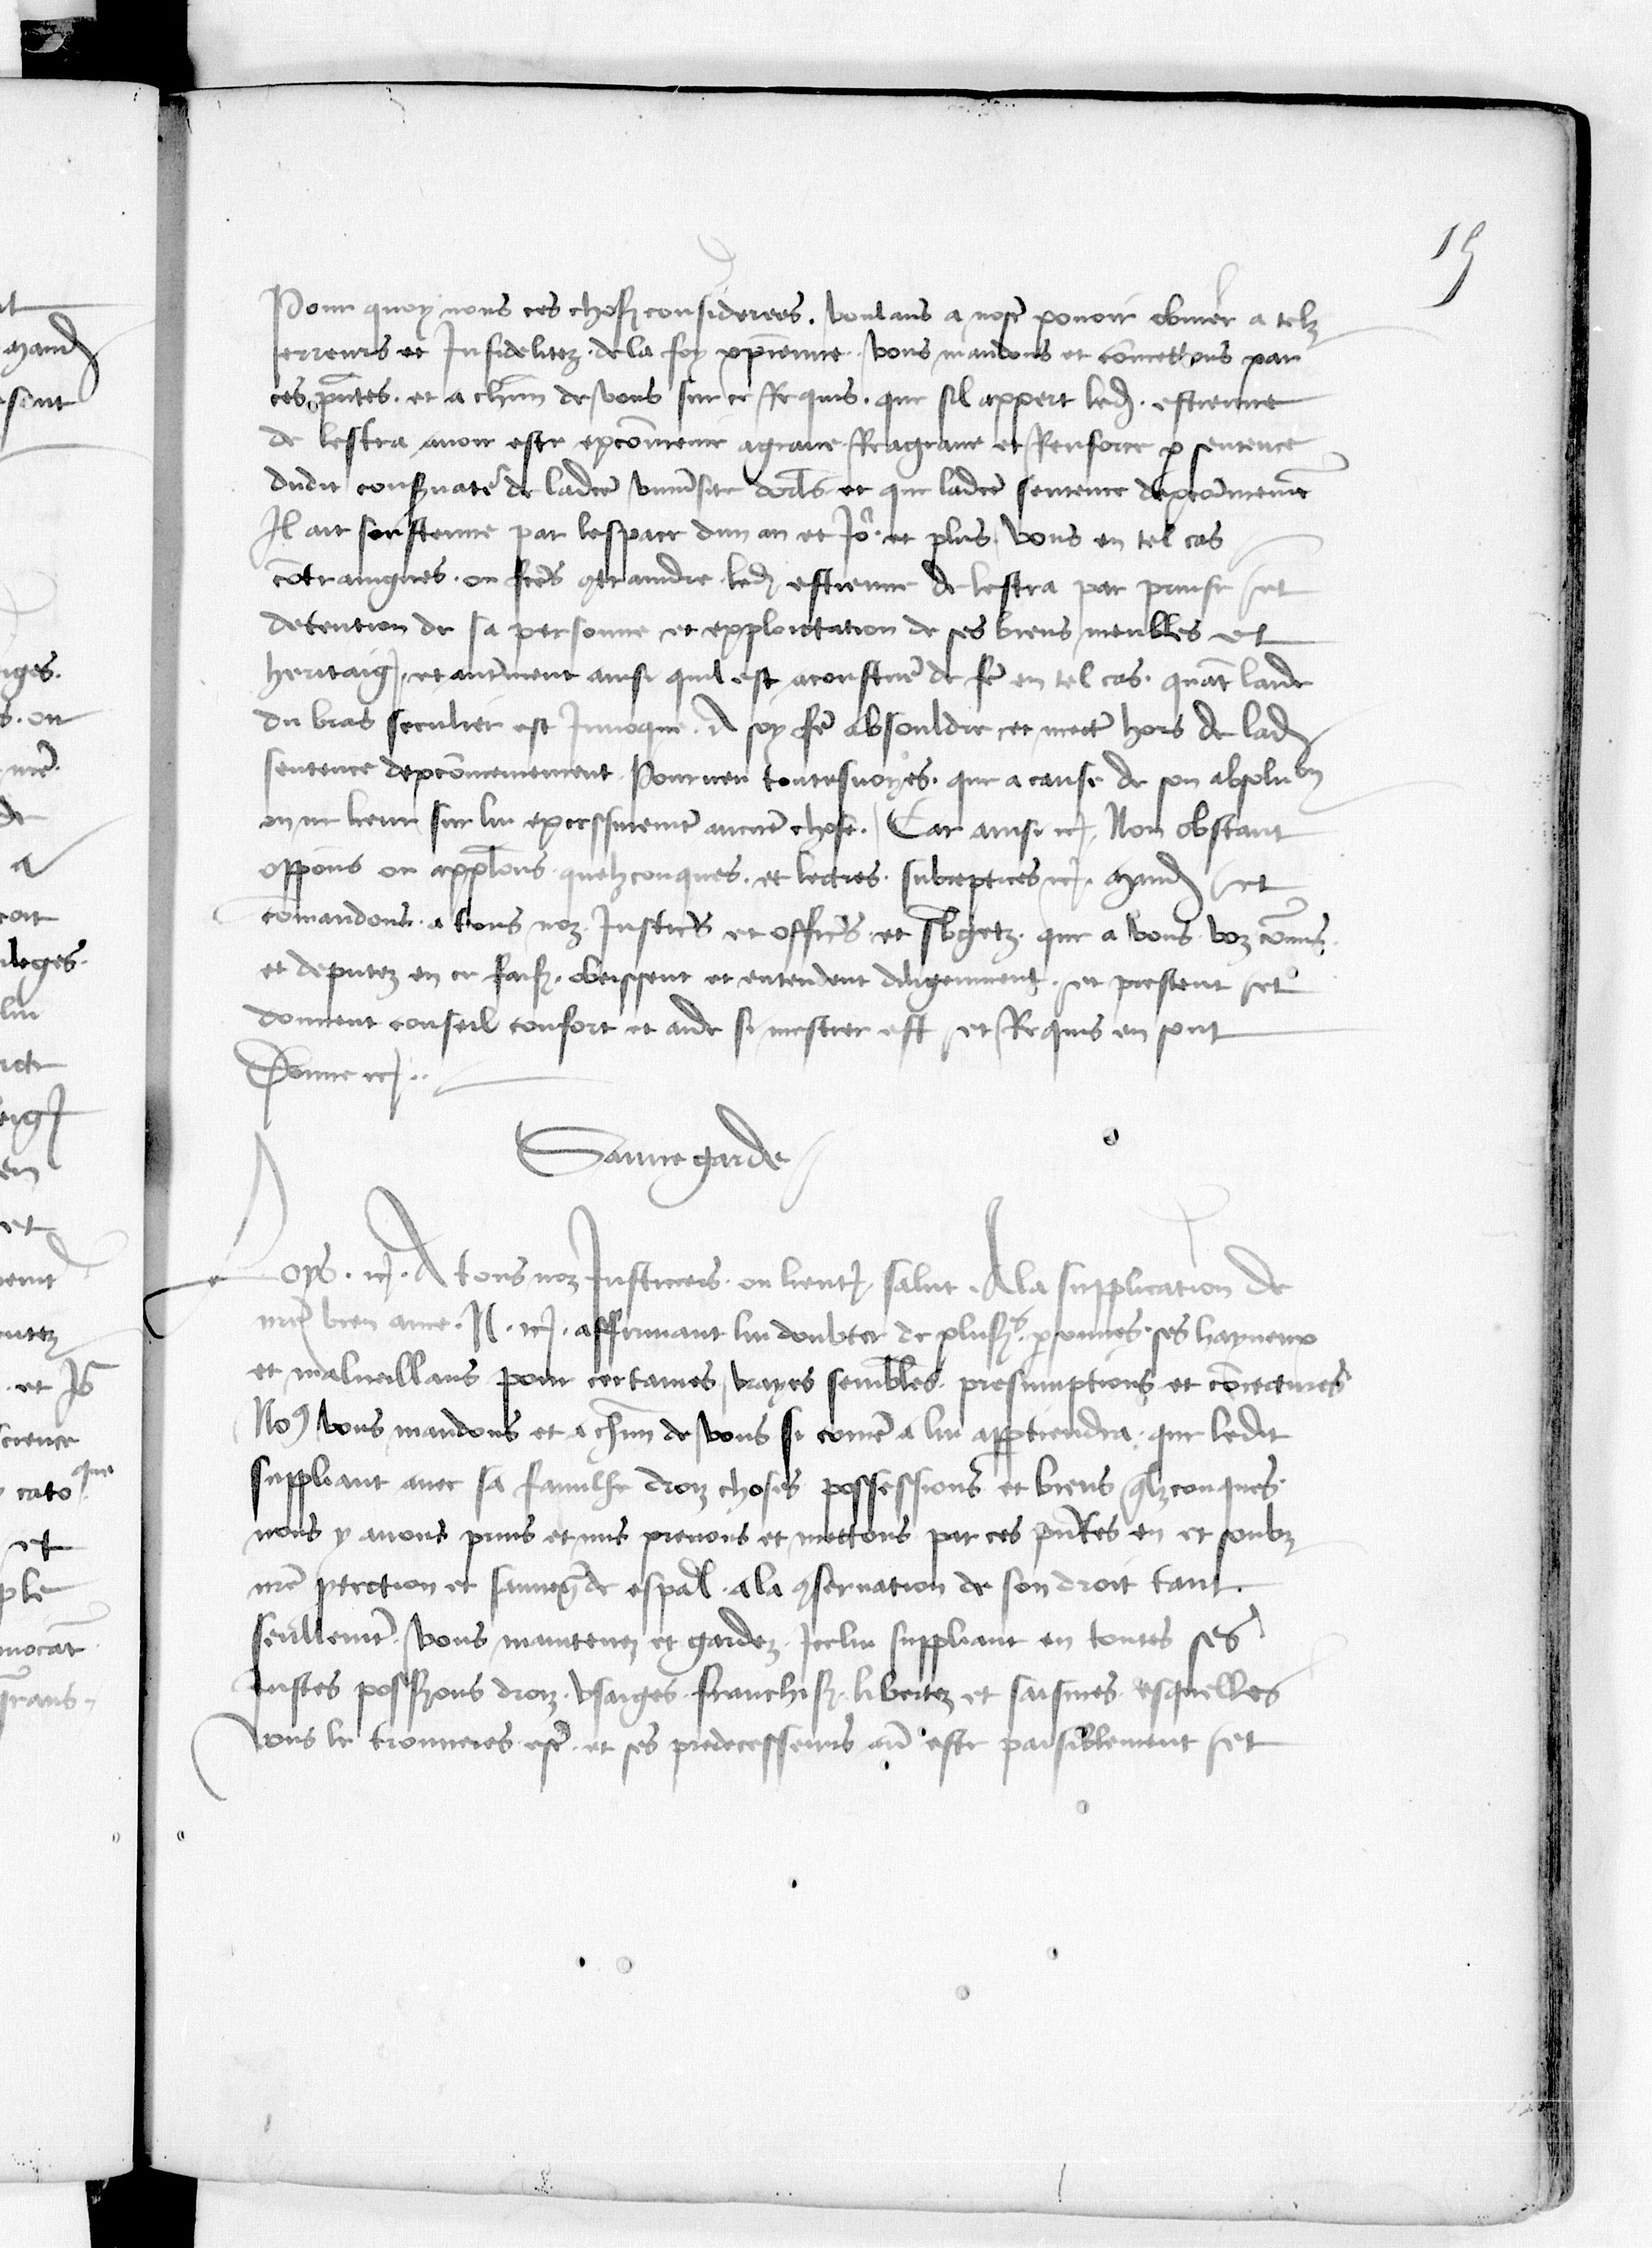 15
Pour quoy nous ces chos̄ considerees. voulans a nostre pouoir obuier a telz
erreurs et Infidelitez. de la foy xp̄ienne. vous mandons et com̄ettons par
ces p̄ntes. et a chūn de vous sur ce Requis. que sil appert led. estienne
de lestra auoir este excōmenie agraue Reagraue et Renforce p sentence
dudit conseruate' de ladce vniūsite dorl̄s. et que ladce sentence dexcōmeniem̄t
Il ait soustenue par lespace dun an et Jo'. et plus vous en tel cas
cōtraingnes. ou fcēs 9traindre led estienne de lestra par prinse et
detention de sa personne et exploictation de ses biens meubles et
heritaig, et autrement ainsi quil est acoustue de fe' en tel cas. quāt laide
du bras seculier est Inuoque. A soy fe' absouldre et mectr' hors de lad
sentence dexcōmeniement. Pourueu toutesuoyes. que a cause de son absoluōn
on ne lieue sur lui expressement aucune chose. Car ainsi etc. Non obstant
opp̄ons ou appl̄ons quelzconques. et lectres subreptices etc. Mand et
cōmandons. a tous noz Justic̄s et offic̄s et sb̄getz. que a vous voz cōmis
et deputez en ce faisˉ. obeissent et entendent diligemment. et prestent et
donnent conseil confort et aide si mestier est et Requis en sont
Donne etc..
Sauuegarde
Loys. etc. A tous noz Justiciers ou lieut, salut. A la supplication de
nr̄e bien ame. N. etc. affirmant lui doubter de plus^rs. psonnes. ses hayneux
et malueillans pour certaines vrayes sembl̄es presumptions et cōiectures
No9 vous mandons et a chūn de vous si comē a lui apptiendra. que ledit
suppliant auec sa famille droiz choses possessions et biens qlzconques.
nous y auons prins et mis prenons et mettons par ces p̄ntes en et soubz
nr̄e ptection et sauuegde esp̄al. a la 9seruation de son droit tant.
seullemt. vous maintenez et gardez. Jcelui suppliant en toutes ses
iustes poss̄ions droiz. vsaiges. franchisˉ. libertez et saisines. esquelles
vous le trouueres estr'. et ses predecesseurs au' este paisiblement et